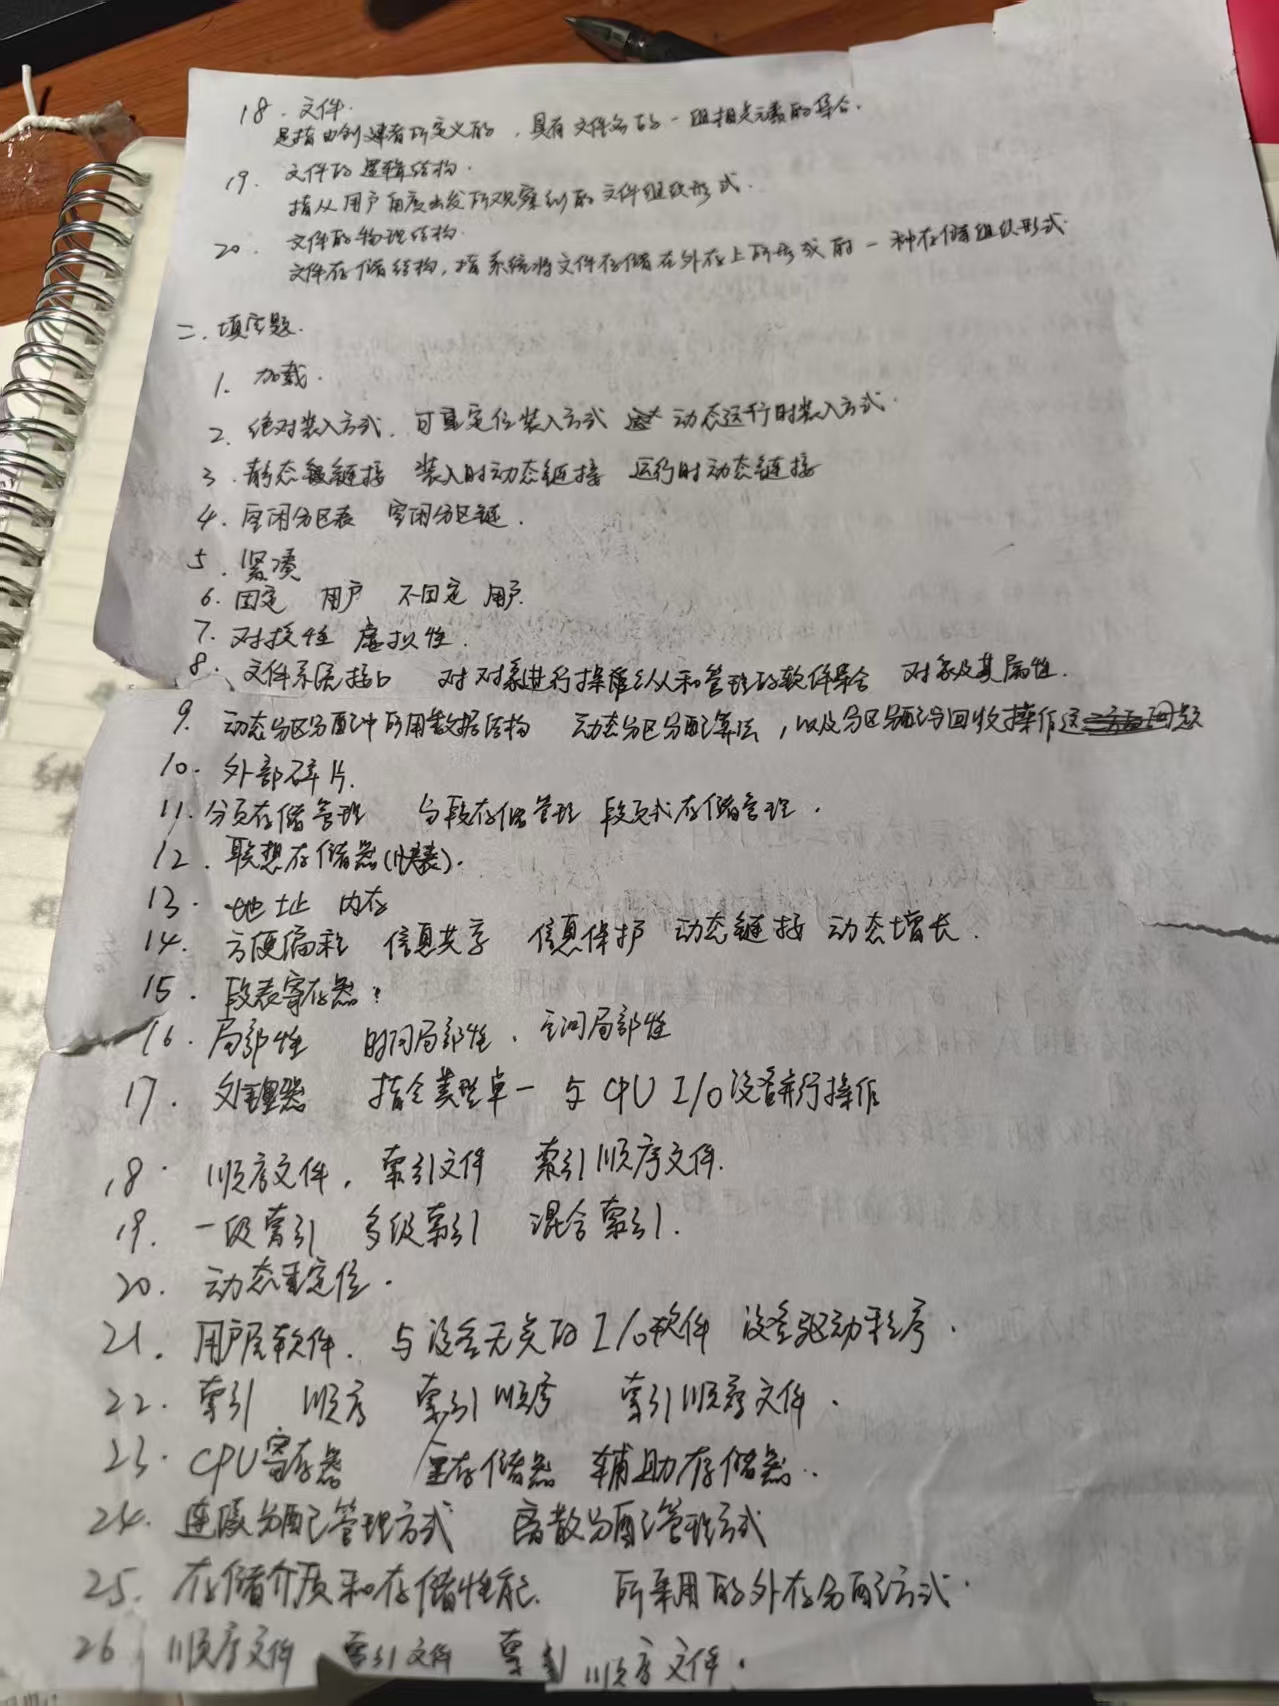 18. 文件.
是指由创建者所定义的,具有文件名的一组相关元素的集合.
19. 文件的逻辑结构.
指从用户角度出发所观察到的文件组织形式.
20. 文件的物理结构.
文件存储结构,指系统将文件存储在外存上所形成的一种存储组织形式.
二.填空题.
1. 加载.
2. 绝对装入方式. 可重定位装入方式 动态运行时装入方式.
3. 静态链接 装入时动态链接 运行时动态链接
4. 空闲分区表 空闲分区链.
5. 紧凑
6. 固定 用户 不固定 用户.
7. 对换性 虚拟性.
8. 文件系统接口 对对象进行操纵和管理的软件集合 对象及其属性.
9. 动态分区分配中所用数据结构 动态分区分配算法,以及分区分配与回收操作这问题
10. 外部碎片.
11. 分页存储管理 分段存储管理 段页式存储管理.
12. 联想存储器(快表).
13. 地址 内存
14. 方便编程 信息共享 信息保护 动态链接 动态增长.
15. 段表寄存器.
16. 局部性 时间局部性. 空间局部性
17. 处理器 指令类型单一 与CPU I/O设备并行操作
18. 顺序文件, 索引文件 索引顺序文件.
19. 一级索引 多级索引 混合索引.
20. 动态重定位.
21. 用户层软件. 与设备无关的I/O软件 设备驱动程序.
22. 索引 顺序 索引顺序 索引顺序文件.
23. CPU寄存器 主存储器 辅助存储器.
24. 连续分配管理方式 离散分配管理方式
25. 存储介质和存储性能. 所采用的外存分配方式.
26 顺序文件 索引文件 索引顺序文件.